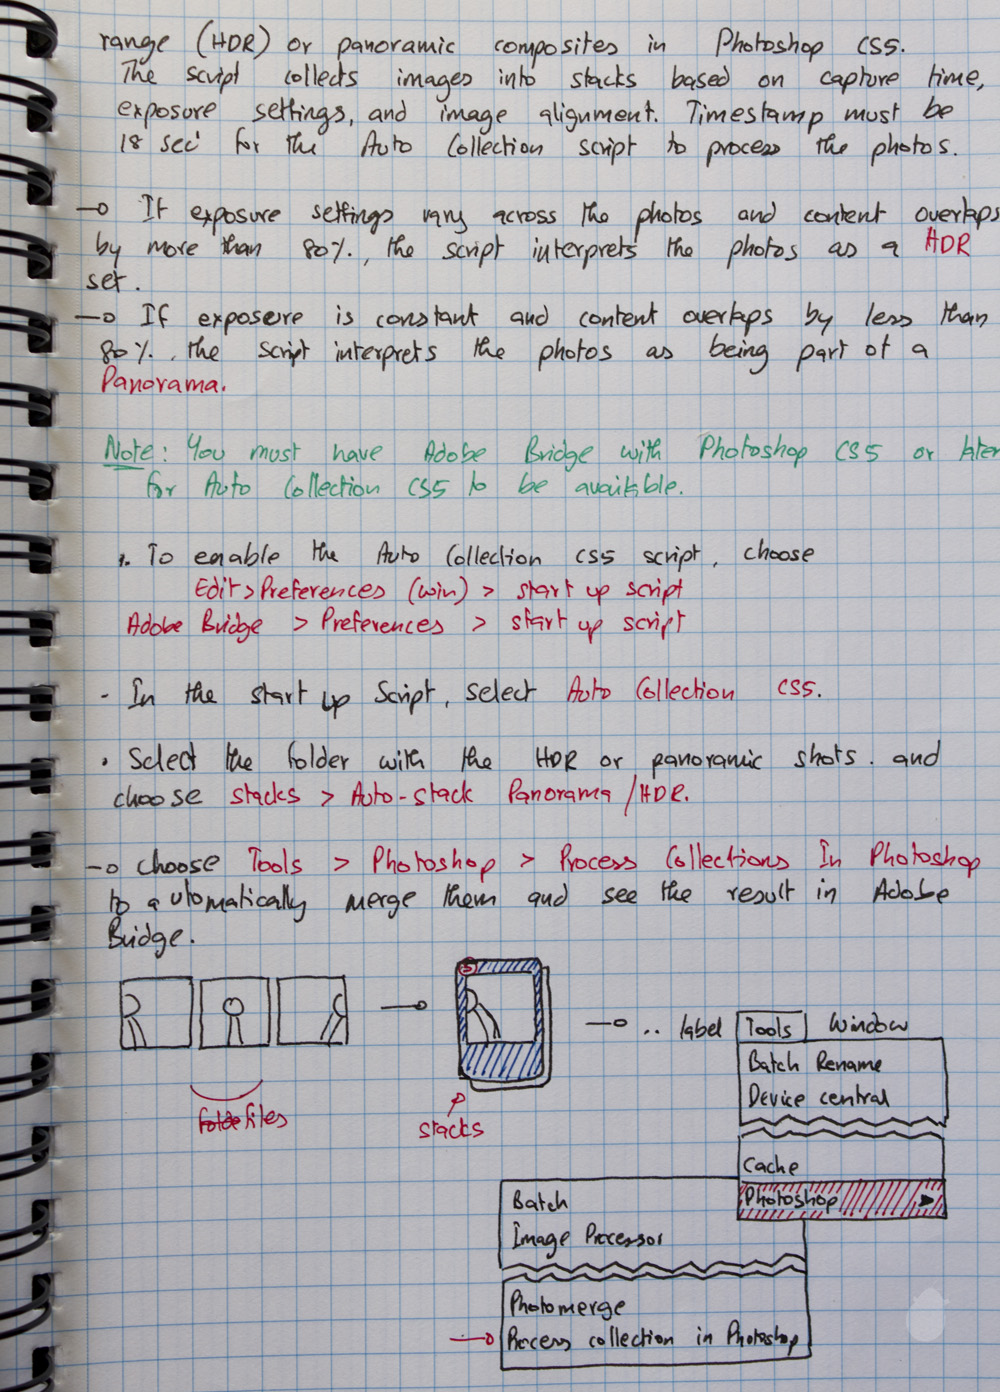 range (HDR) or panoramic composites in Photoshop CS5.
The script collects images into stacks based on capture time,
exposure settings, and image alignment. Timestamp must be
18 sec for the Auto Collection script to process the photos.
If exposure settings vary across the photos and content overlaps
by more than 80%, the script interprets the photos as a HDR
set.
If exposure is constant and content overlaps by less than
80%, the script interprets the photos as being part of a
Panorama.
Note: You must have Adobe Bridge with Photoshop CS5 or later
for Auto Collection CS5 to be available.
1. To enable the Auto Collection CS5 script, choose
Edit > Preferences (win) > start up script
Adobe Bridge > Preferences > start up script
- In the start up Script, select Auto Collection CS5.
• Select the folder with the HDR or panoramic shots. and
choose stacks > Auto-stack Panorama / HDR.
choose Tools > Photoshop > Process Collections In Photoshop
to automatically merge them and see the result in Adobe
Bridge.
files
stacks
.. label Tools Window
Batch Rename
Device central
Cache
Photoshop
Batch
Image Processor
Photomerge
Process collection in Photoshop